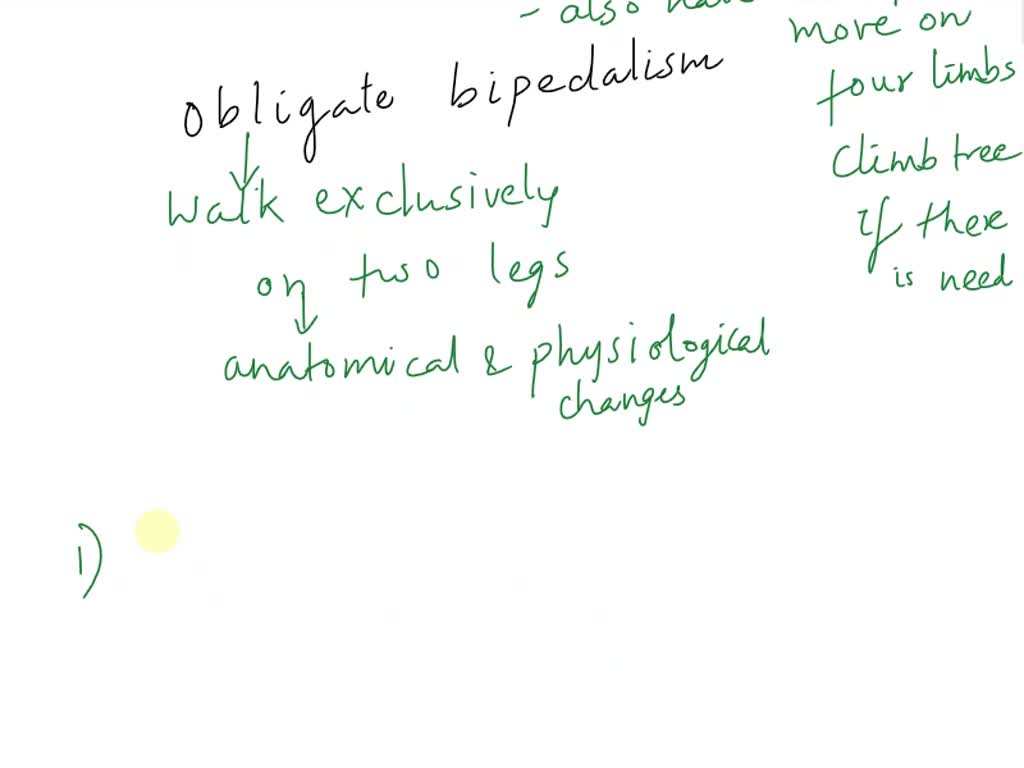 - also have
more on
four limbs
climb tree
if there
is need
obligate bipedalism
walk exclusively
on two legs
anatomical & physiological
changes
1)